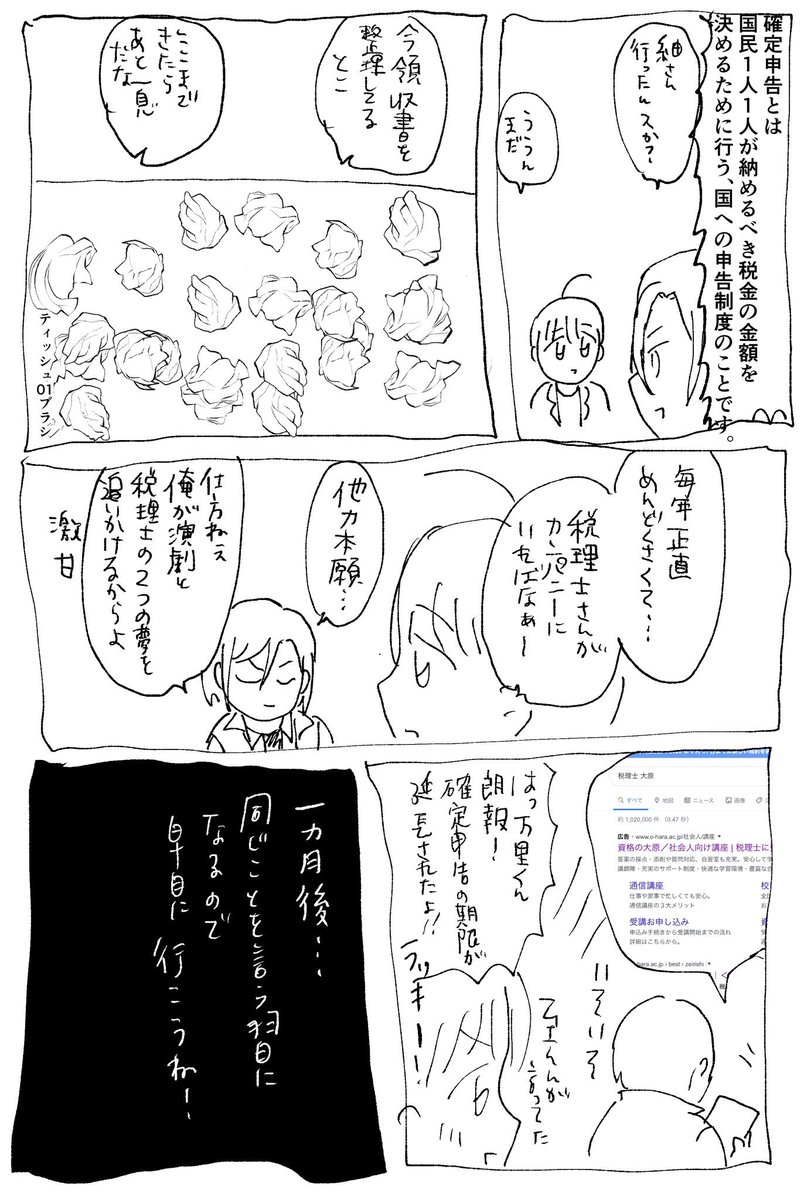 確定申告とは
国民1人1人が納めるべき税金の金額を
決めるために行う、国への申告制度のことです。
紬さん
行ったんスか?
ううん
まだ
今領収書を
整理してる
とこ
ここまで
きたら
あと一息
だな
ティッシュ
01ブラシ
毎年正直
めんどくさくて…
税理士さんが
カンパニーに
いればなぁ〜
他力本願…
仕方ねえ
俺が演劇と
税理士の2つの夢を
追いかけるからよ
激甘
税理士 大原
すべて
地図
ニュース
画像
約 1,020,000 件 (0.47 秒)
広告・www.o-hara.ac.jp/社会人/講座
資格の大原/社会人向け講座 | 税理士に
答案の採点・添削や質問対応、自習室も充実。安心して学
講師陣・充実のサポート制度・快適な学習環境・豊富な
通信講座
仕事や家事で忙しくても安心。
通信講座の3大メリット
受講お申し込み
申込み手続きから受講開始までの流れ
詳細はこちらから。
hara.ac.jp › best › zeirishi
いそいそ
はっ万里くん
朗報!
確定申告の期限が
延長されたよ!!
ラッキー!
至くんが
言ってた
一カ月後…
同じことを言う羽目に
なるので
早目に行こうね!